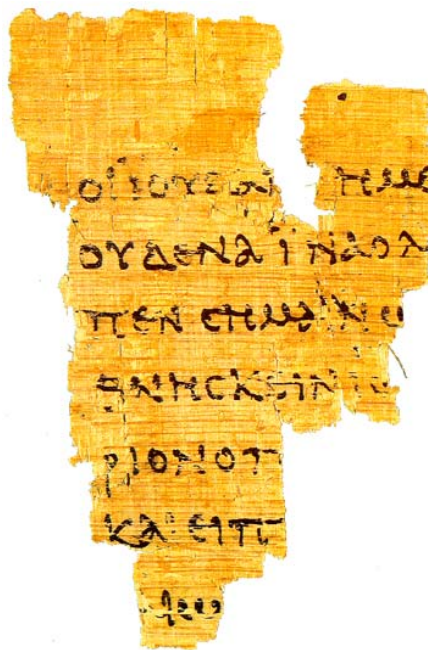 ΟΙ ΙΟΥΔΑΙ ΗΜΕ
ΟΥΔΕΝΑ ΪΝΑ Ο Λ
ΠΕΝ CΗΜΑΙΝΩ
ΘΝΗCΚΕΙΝ ΙC
ΡΙΟΝ Ο Π
ΚΑΙ ΕΙΠ